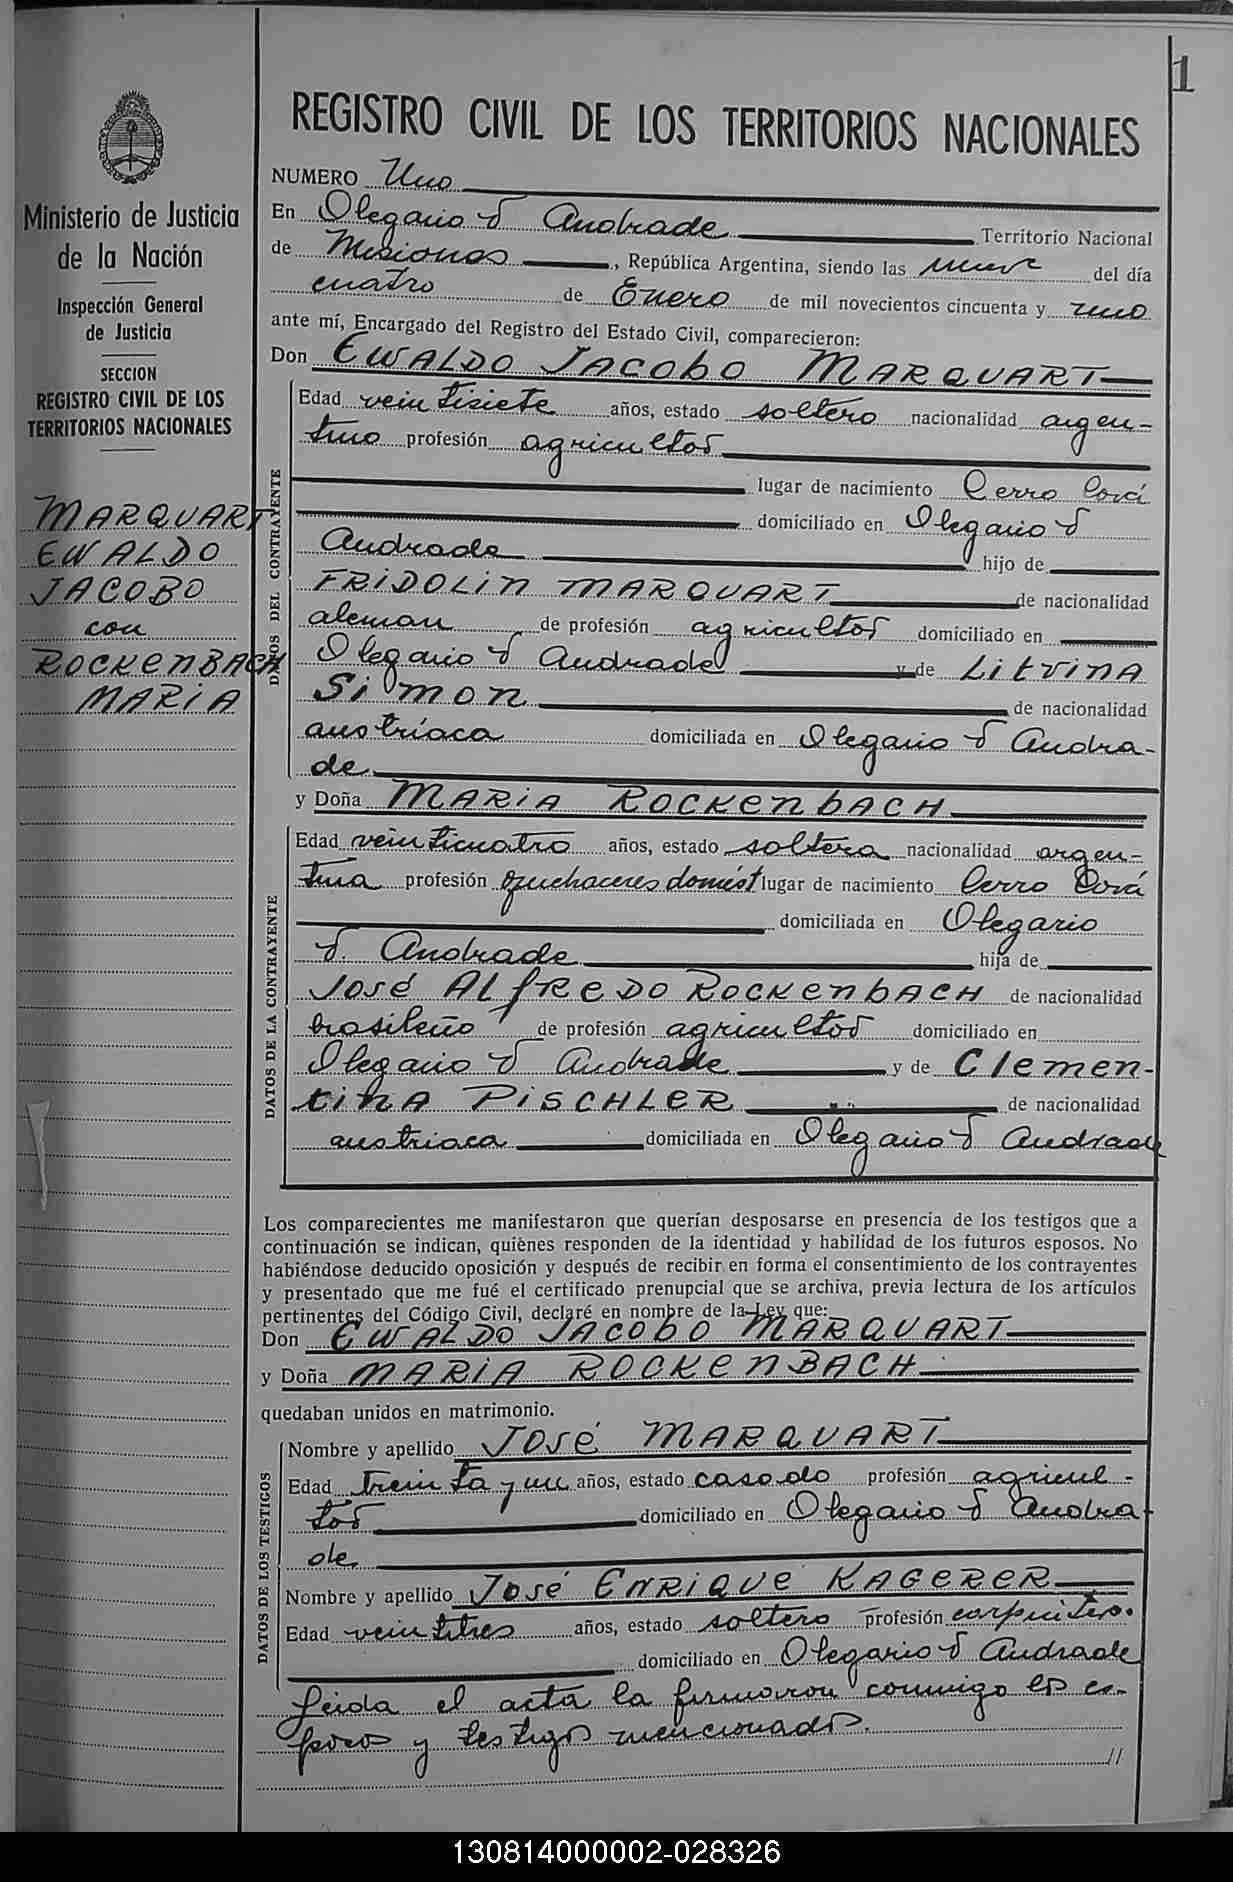 1
REGISTRO CIVIL DE LOS TERRITORIOS NACIONALES
Ministerio de Justicia
de la Nación
Inspección General
de Justicia
SECCION
REGISTRO CIVIL DE LOS
TERRITORIOS NACIONALES
MARQUART
EWALDO
JACOBO
con
ROCKENBACH
MARIA
NUMERO Uno
En Olegario V Andrade Territorio Nacional
de Misiones, República Argentina, siendo las nueve del día
cuatro de Enero de mil novecientos cincuenta y uno
ante mí, Encargado del Registro del Estado Civil, comparecieron:
Don EWALDO JACOBO MARQUART
DATOS DEL CONTRAYENTE
Edad veintisiete años, estado soltero nacionalidad argen-
tino profesión agricultor
lugar de nacimiento Cerro Corá
domiciliado en Olegario V
Andrade hijo de
FRIDOLIN MARQUART de nacionalidad
aleman de profesión agricultor domiciliado en
Olegario V Andrade y de LITVINA
SIMON de nacionalidad
austríaca domiciliada en Olegario V Andra-
de
y Doña MARIA ROCKENBACH
DATOS DE LA CONTRAYENTE
Edad veinticuatro años, estado soltera nacionalidad argen-
tina profesión quehaceres domést lugar de nacimiento Cerro Corá
domiciliada en Olegario
V. Andrade hija de
JOSÉ ALFREDO ROCKENBACH de nacionalidad
brasileño de profesión agricultor domiciliado en
Olegario V Andrade y de CLEMEN-
TINA PISCHLER de nacionalidad
austriaca domiciliada en Olegario V Andrade
Los comparecientes me manifestaron que querían desposarse en presencia de los testigos que a
continuación se indican, quiénes responden de la identidad y habilidad de los futuros esposos. No
habiéndose deducido oposición y después de recibir en forma el consentimiento de los contrayentes
y presentado que me fué el certificado prenupcial que se archiva, previa lectura de los artículos
pertinentes del Código Civil, declaré en nombre de la Ley que:
Don EWALDO JACOBO MARQUART
y Doña MARIA ROCKENBACH
quedaban unidos en matrimonio.
DATOS DE LOS TESTIGOS
Nombre y apellido JOSÉ MARQUART
Edad treinta y un años, estado casado profesión agricul-
tor domiciliado en Olegario V Andra-
de
Nombre y apellido JOSÉ ENRIQUE KAGERER
Edad veintitres años, estado soltero profesión carpintero.
domiciliado en Olegario V Andrade
Leida el acta la firmaron conmigo los es-
posos y testigos mencionados.
//
130814000002-028326